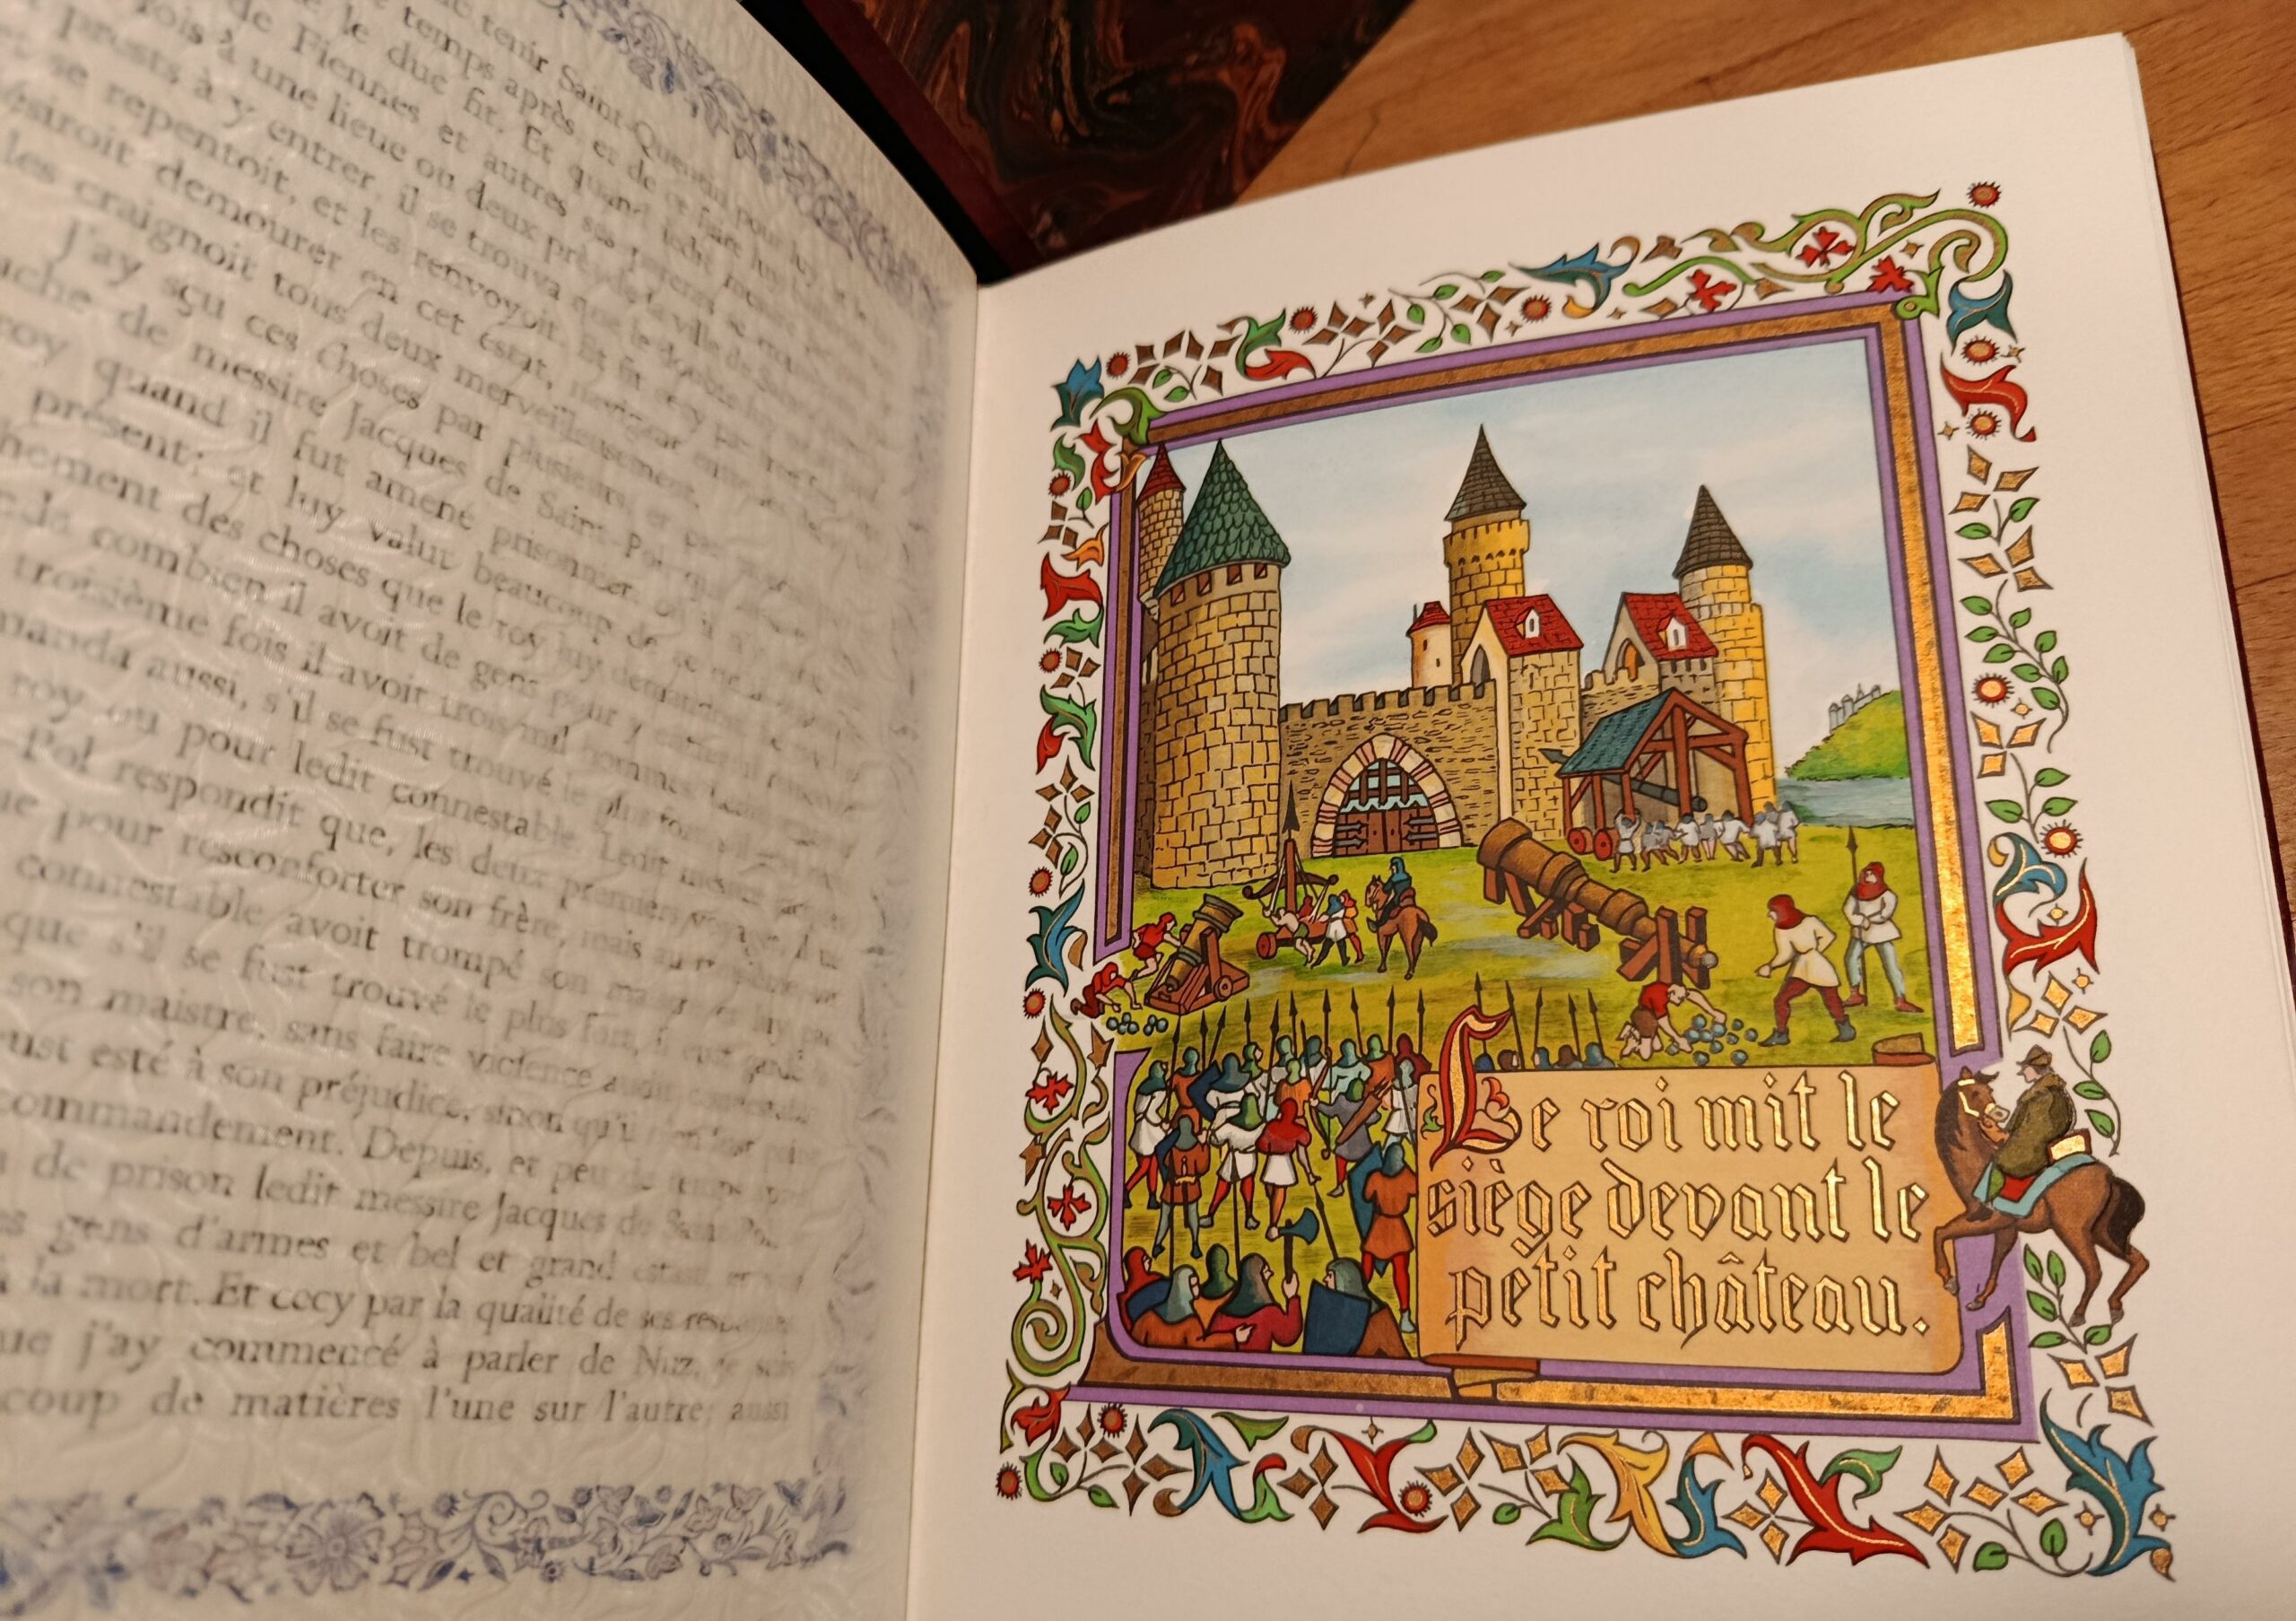 tenir Saint-Quentin pour luy
temps après, et de ce faire
le duc fit. Et quand ledit
de Fiennes et autres ses
fois à une lieue ou deux près de la ville de
prests à y entrer, il se trouva que le
se repentoit, et les renvoyoit. Et fit cecy par
demourer en cet estat,
les craignoit tous deux merveilleusement.
J'ay sçu ces choses par plusieurs, et par
de messire Jacques de Saint-Pol, qui
roy quand il fut amené prisonnier.
présent; et luy valut beaucoup de
des choses que le roy luy
combien il avoit de gens pour y
troisième fois il avoit trois mil hommes. Ledit
manda aussi, s'il se fust trouvé le plus fort,
roy ou pour ledit connestable. Ledit
Pol respondit que, les deux premiers voyages, il
pour resconforter son frère, mais au
connestable avoit trompé son
que s'il se fust trouvé le plus fort, il eust
son maistre, sans faire violence audit
esté à son préjudice, sinon qu'il
commandement. Depuis, et peu de temps
de prison ledit messire Jacques de
gens d'armes et bel et grand estat,
à la mort. Et cecy par la qualité de ses
j'ay commencé à parler de Nuz, je suis
de matières l'une sur l'autre; aussi
Le roi mit le
siège devant le
petit château.